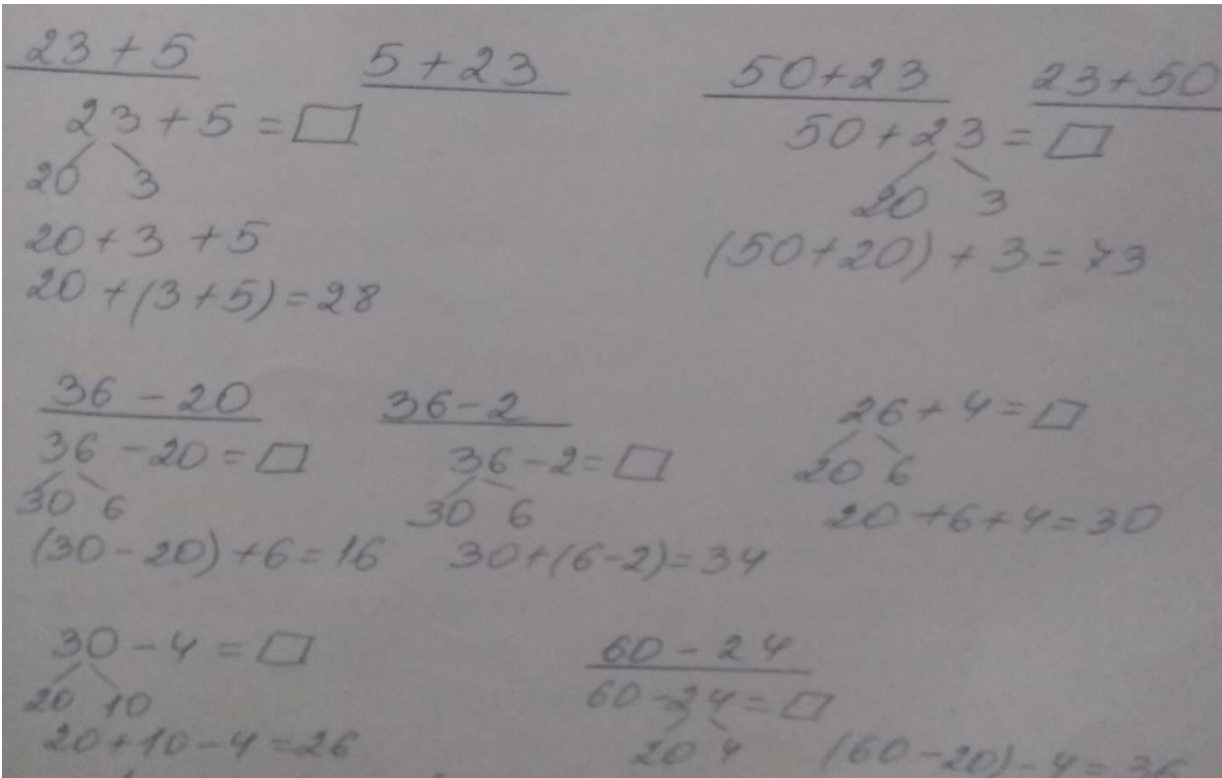 23 + 5
5 + 23
50 + 23
23 + 50
23 + 5 = □
20 3
20 + 3 + 5
20 + (3 + 5) = 28
50 + 23 = □
20 3
(50 + 20) + 3 = 73
36 - 20
36 - 20 = □
30 6
(30 - 20) + 6 = 16
36 - 2
36 - 2 = □
30 6
30 + (6 - 2) = 34
26 + 4 = □
20 6
20 + 6 + 4 = 30
30 - 4 = □
20 10
20 + 10 - 4 = 26
60 - 24
60 - 24 = □
20 4
(60 - 20) - 4 = 36